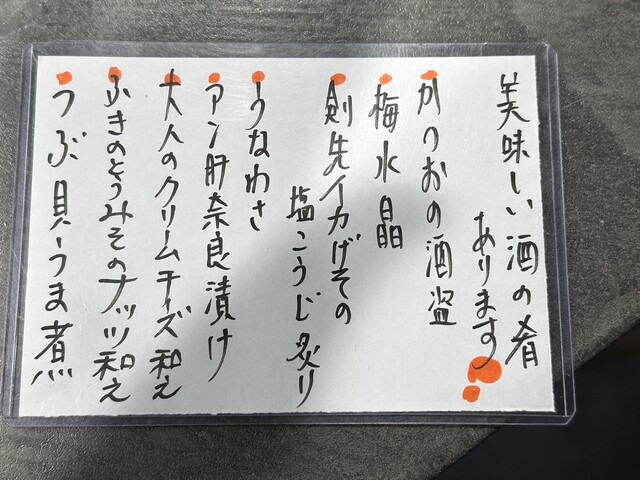 美味しい酒の肴
あります
かつおの酒盗
梅水晶
剣先イカげその
塩こうじ炙り
うなわさ
アン肝奈良漬け
大人のクリームチーズ和え
ふきのとうみそのナッツ和え
つぶ貝うま煮